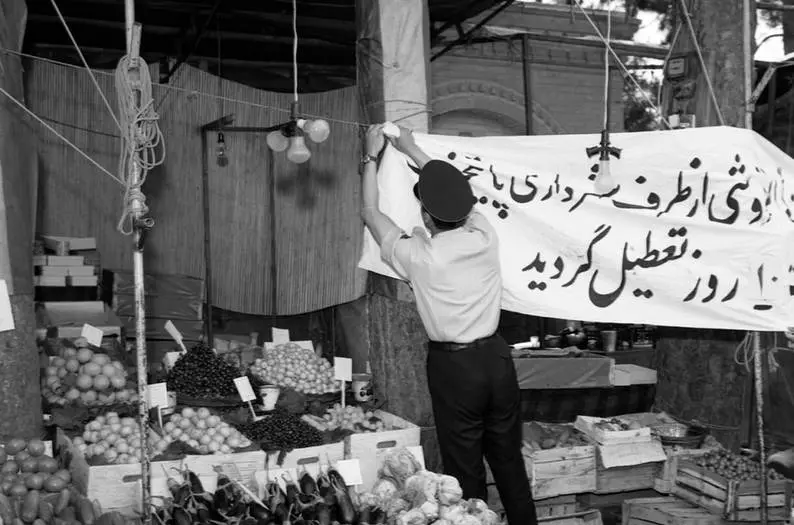 گرانفروشی از طرف شهرداری پایتخت
۱۰ روز تعطیل گردید